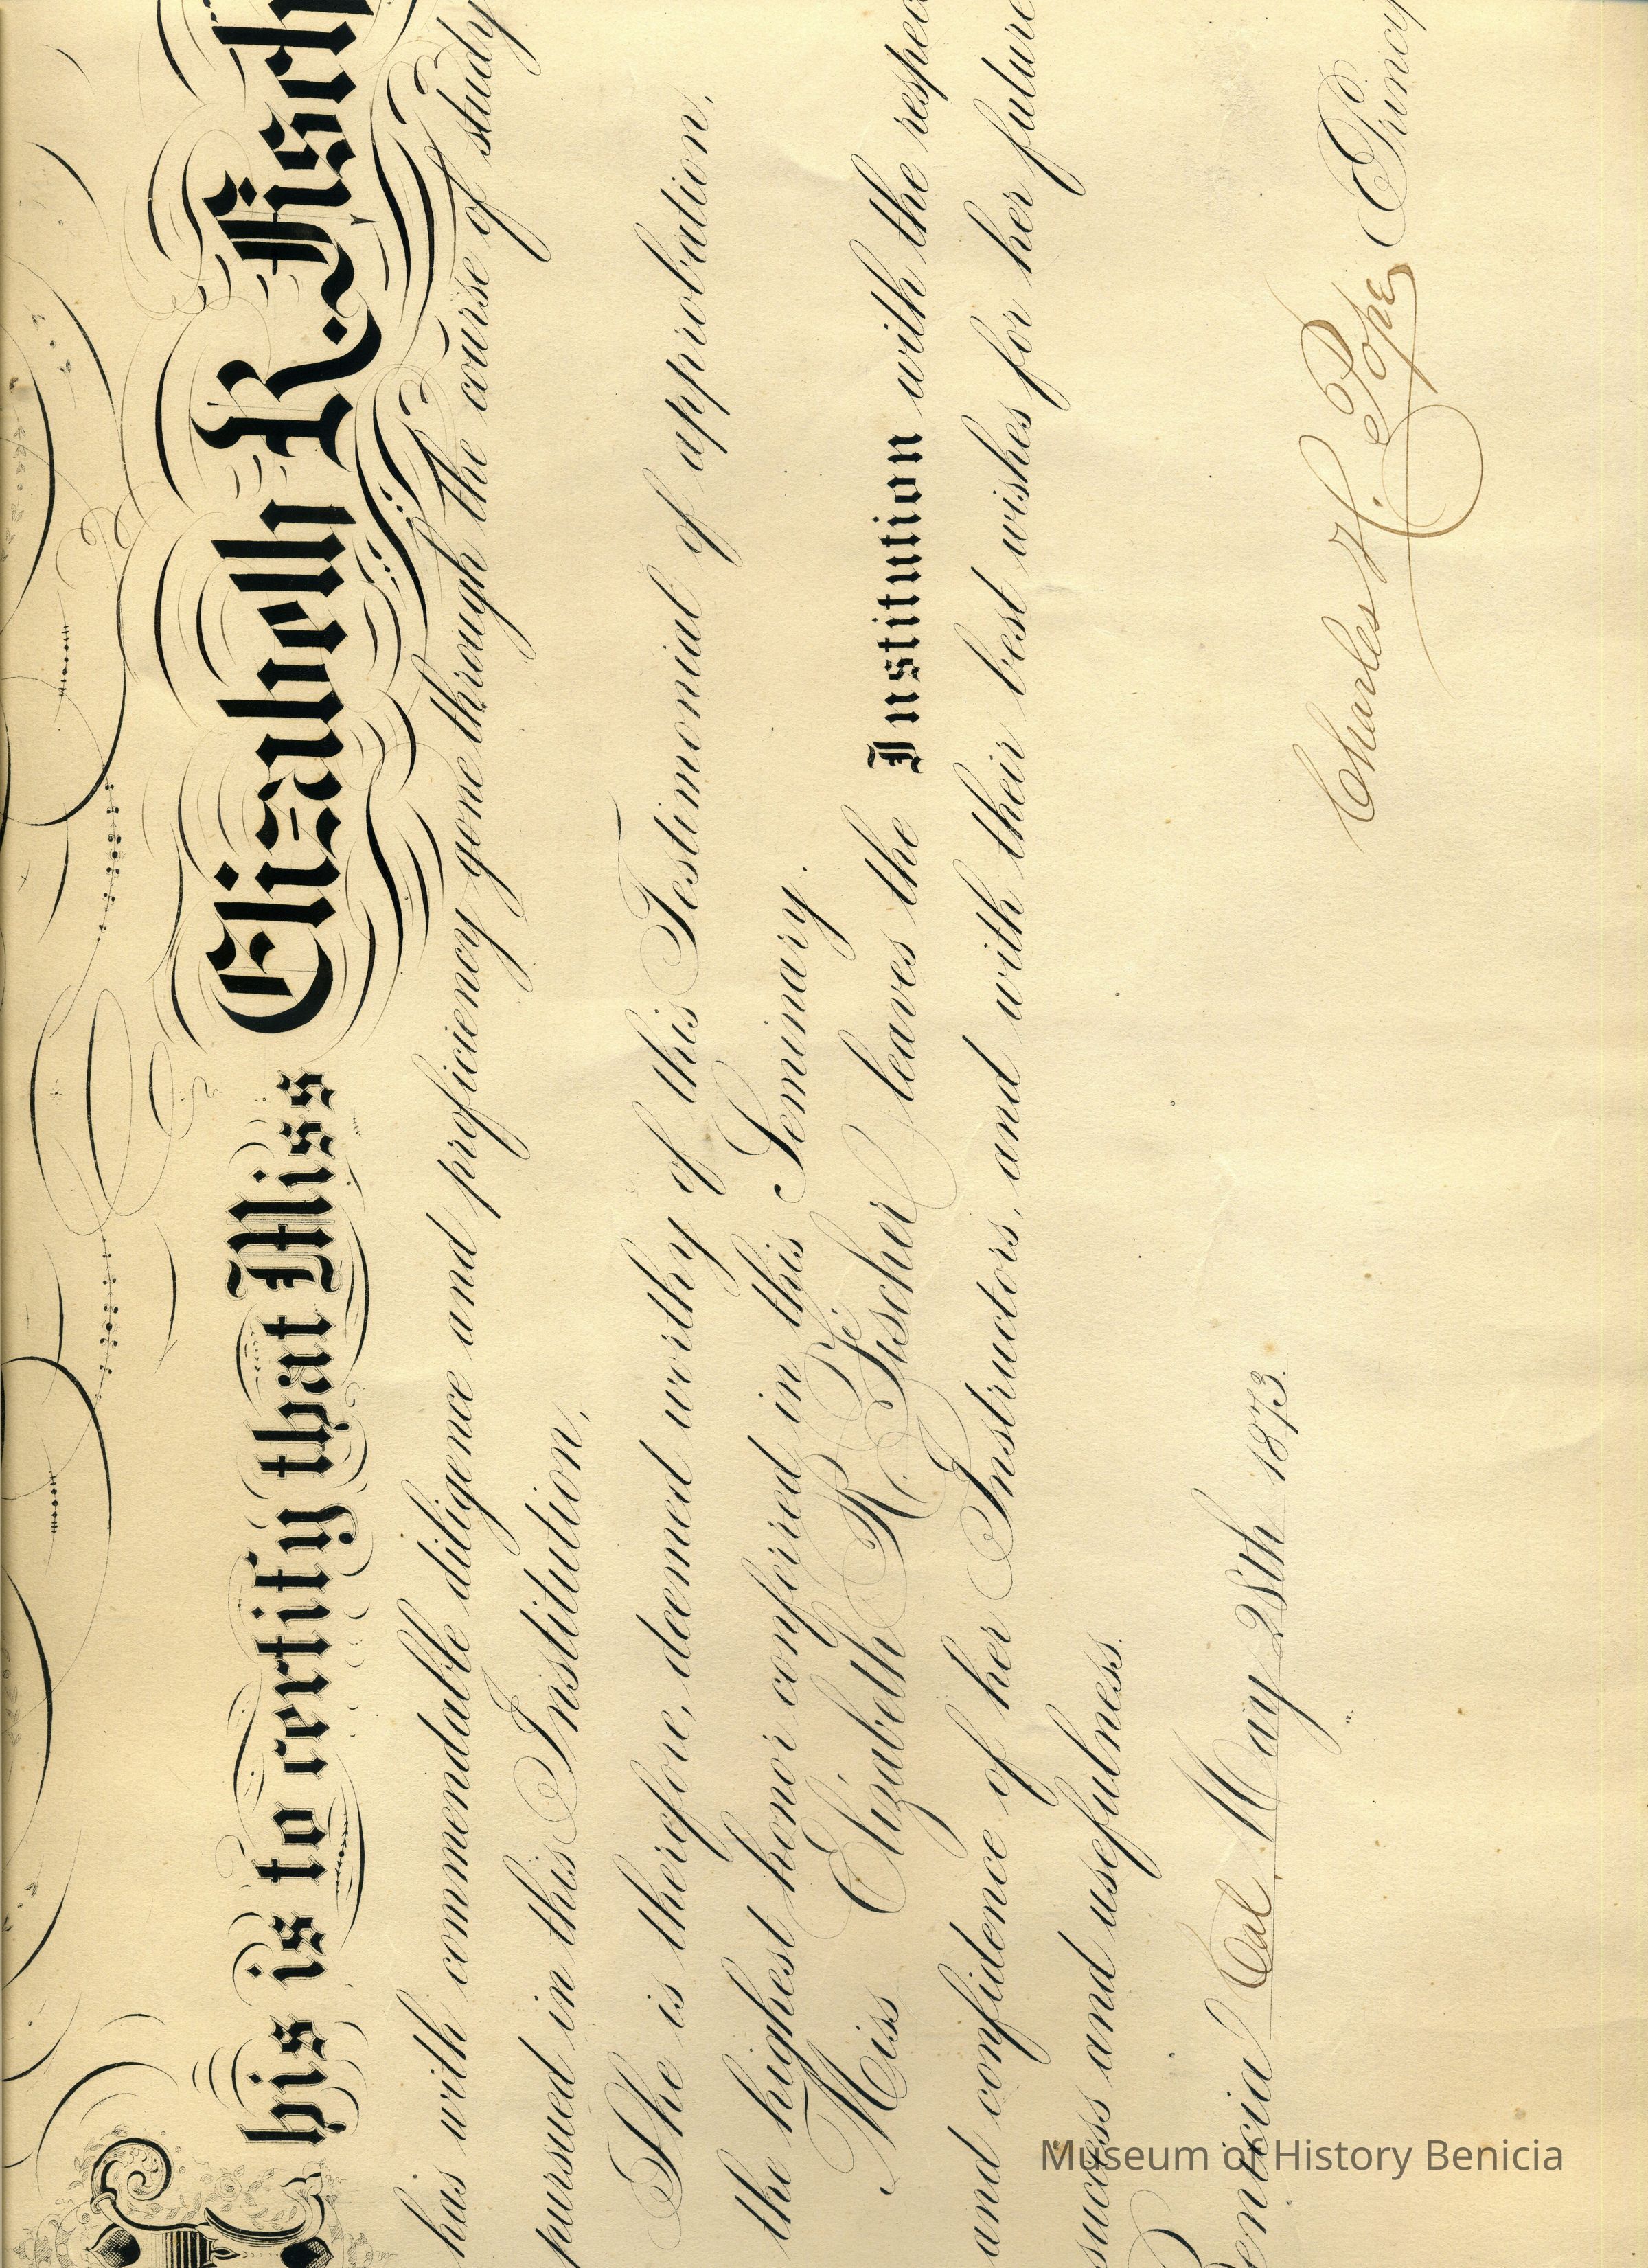 his is to certify that Miss Elizabeth R. Fisch
has with commendable diligence and proficiency gone through the course of study
pursued in this Institution.
She is therefore, deemed worthy of this Testimonial of approbation,
the highest honor conferred in this Seminary.
Miss Elizabeth R. Fischer leaves the Institution with the respec
and confidence of her Instructors, and with their best wishes for her future
success and usefulness.
Benicia Cal. May 28th 1873.
Charles H. Pope Princip
Museum of History Benicia